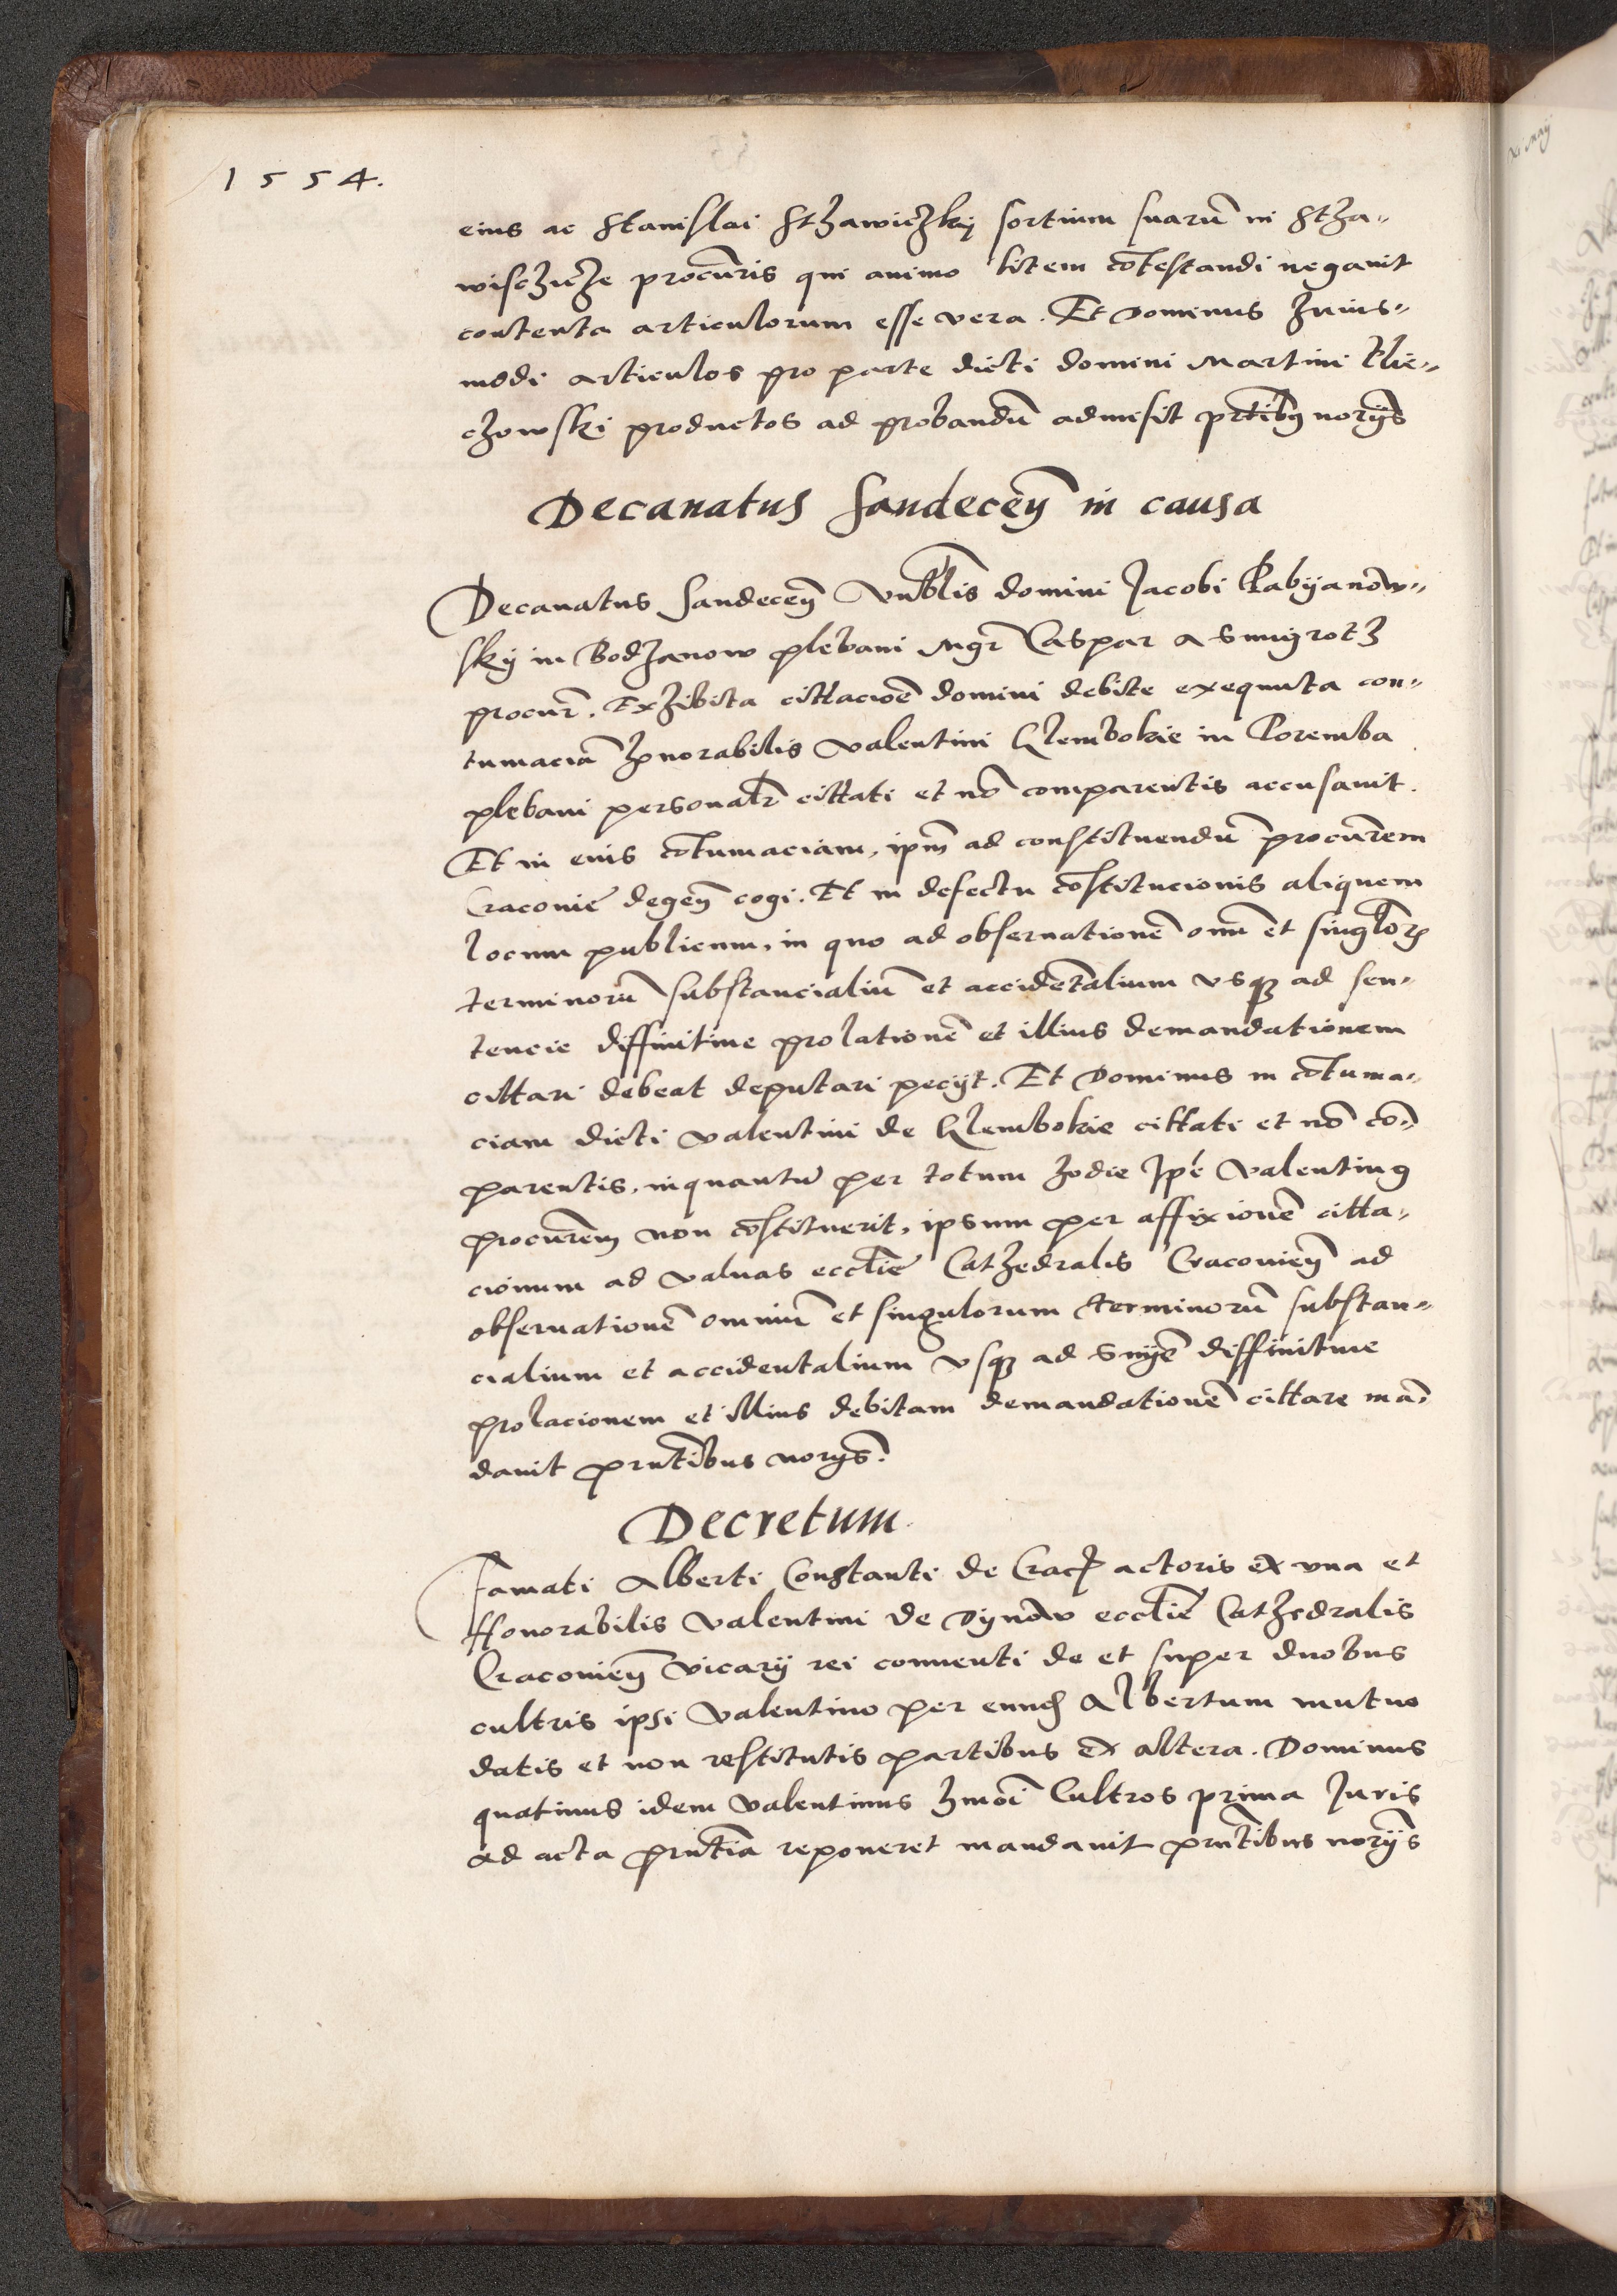 1554.
eius ac Stanislai Sthawiczkij sortium suarū in Stha-
wisczicze procuris qui animo litem cōtestandi negauit
contenta articulorum esse vera. Et Dominus huius-
modi articulos pro parte dicti domini Martini Clie-
czowski productos ad probandū admisit prtibus norijs
Decanatus Sandeceñ in causa
Decanatus Sandeceñ Vnblis domini Jacobi Rabijanow-
skij in Bodzanow plebani Mgr Caspar a Smigrothz
procur. Exhibita cittacioē domini debite exequuta con-
tumaciā honorabilis Valentini Glembokie in Poremba
plebani personalr cittati et nō comparentis accusauit.
Et in eius cōtumaciam, ipm ad constituendū procurem
Cracouie degeñ cogi. Et in defectu cōstitucionis aliquem
locum publicum, in quo ad obseruationē omū et singlorū
terminorū substancialiū et accidētalium vsque ad sen-
tencie diffinitiue prolationē et illius demandationem
cittari debeat deputari pecijt. Et Dominus in cōtuma-
ciam dicti Valentini de Glembokie cittati et nō cō-
parentis, inquantū per totum hodie Ipē Valentinus
procurem non cōstituerit, ipsum per affixionē citta-
cionum ad valuas ecclie Cathedralis Cracouieñ ad
obseruationē omniū et singulorum terminorū substan-
cialium et accidentalium vsque ad Snijē diffinitiue
prolacionem et illius debitam demandationē cittare mā-
dauit prntibus norijs.
Decretum
Famati Alberti Constanti de Crac actoris ex vna et
Honorabilis Valentini de Dynow ecclie Cathedralis
Cracouieñ vicarij rei conuenti de et super duobus
cultris ipsi Valentino per eund Albertum mutuo
datis et non restitutis partibus ex altera. Dominus
quatinus idem Valentinus hmōi Cultros prima Juris
ad acta prntia reponeret mandauit prntibus norijs